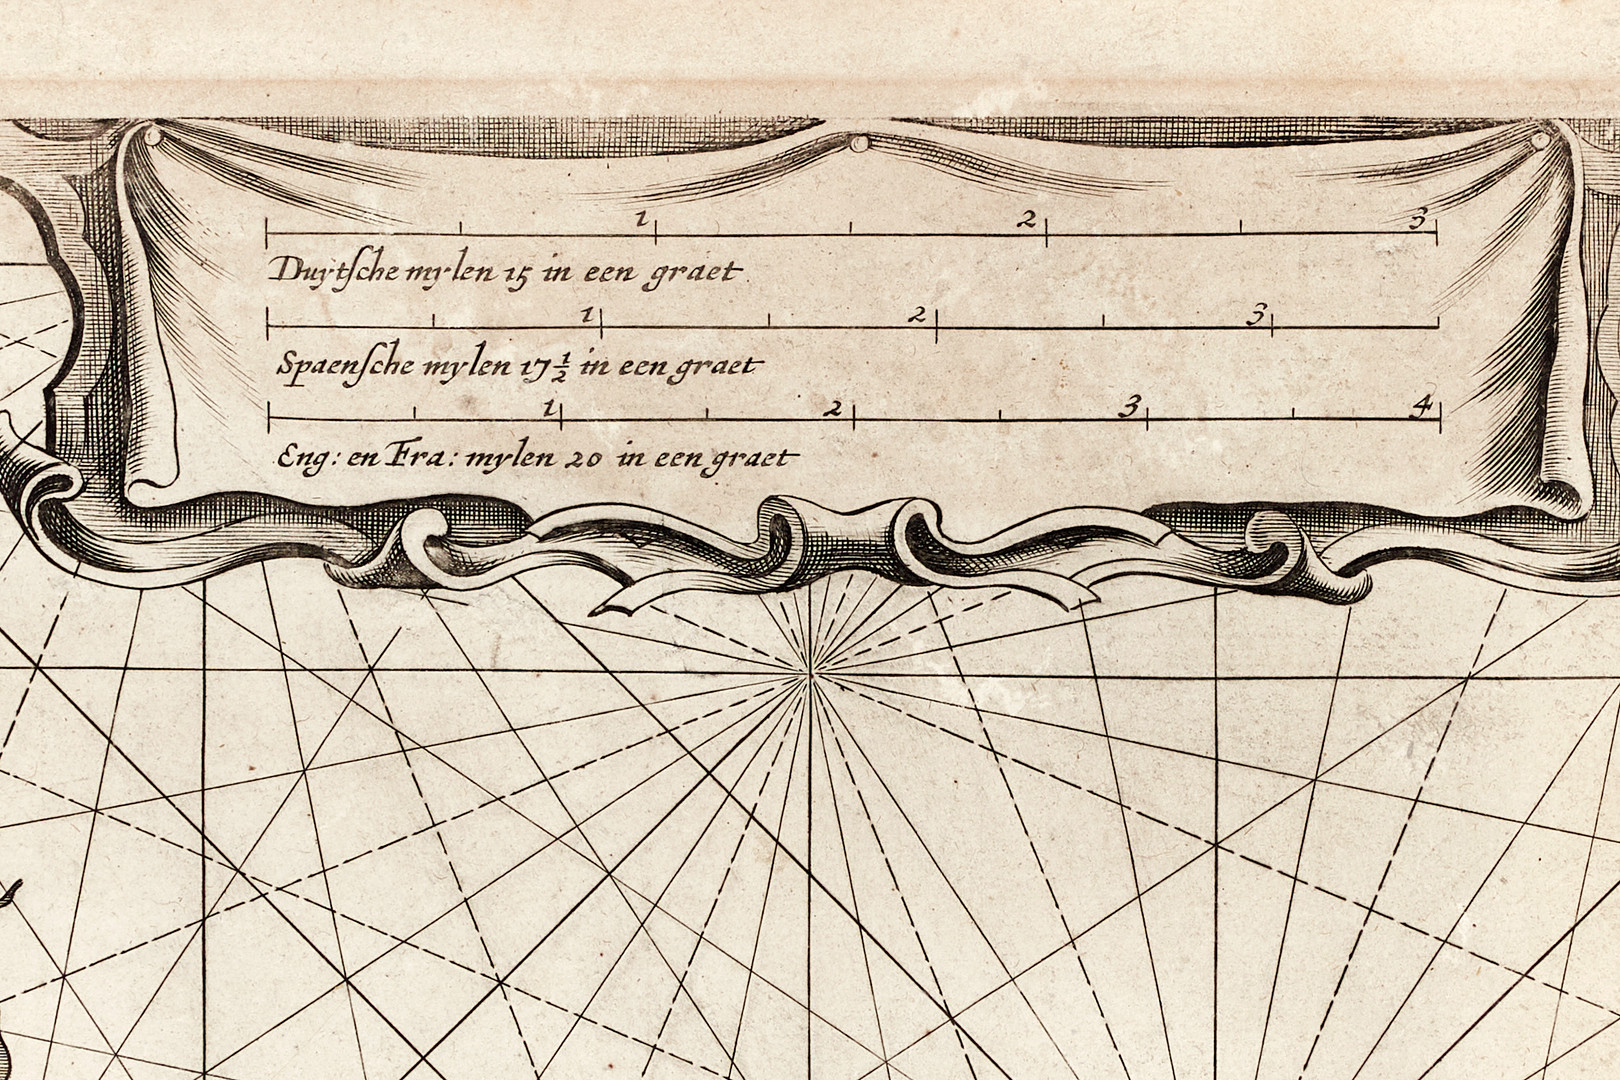 1 2 3
Duytſche mylen 15 in een graet
1 2 3
Spaenſche mylen 17 1/2 in een graet
1 2 3 4
Eng: en Fra: mylen 20 in een graet